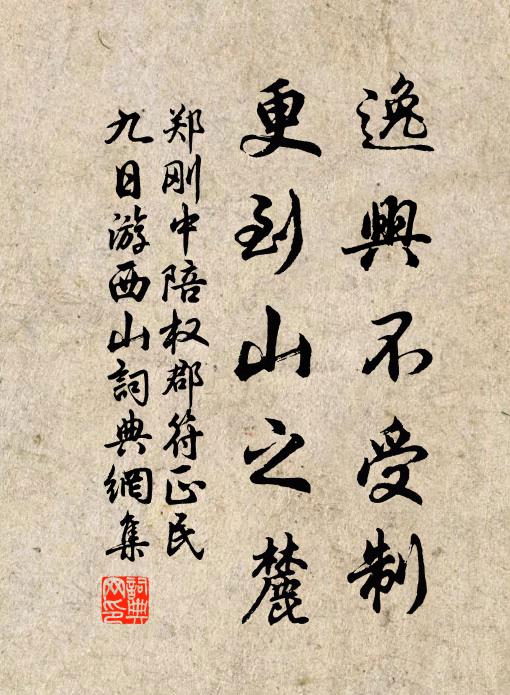 逸興不受制
更到山之麓
郑刚中陪权郡符正民
九日游西山詞典網集
詞典网印